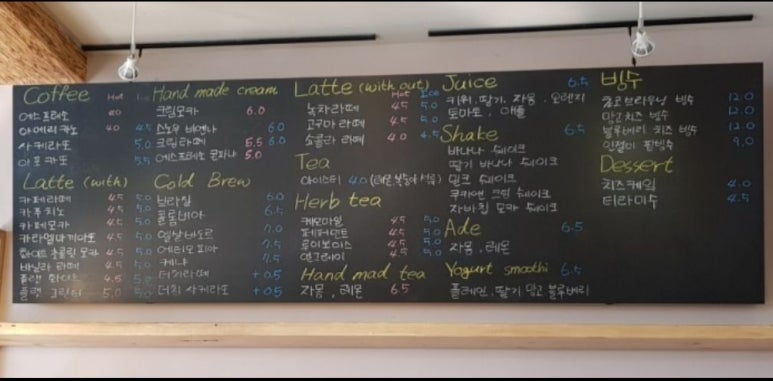 Coffee Hot Ice
에스프레소 4.0
아메리카노 4.0 4.5
사케라또 5.0
아포카토 5.5
Latte (with)
카페라떼 4.5 5.0
카푸치노 4.5 5.0
카페모카 4.5 5.0
카라멜마끼아또 4.5 5.0
화이트 초콜릿 모카 4.5 5.0
바닐라 라떼 4.5 5.0
플랫 화이트 4.5 5.0
5.0 5.0
Hand made cream
크림모카 6.0
스노우 비엔나 6.0
크림라떼 5.5 6.0
에스프레소 콘파나 5.0
Cold Brew
브라질 6.0
콜롬비아 6.5
엘살바도르 7.0
에티오피아 7.5
케냐 7.5
더치라떼 +0.5
더치 사케라또 +0.5
Latte (with out)
Hot Ice
녹차라떼 4.5 5.0
고구마 라떼 4.5 5.0
쇼콜라 라떼 4.0 4.5
Tea
아이스티 4.0
Herb tea
캐모마일 4.5 5.0
페퍼민트 4.5 5.0
루이보이스 4.5 5.0
얼그레이 4.5 5.0
Hand mad tea
자몽, 레몬 6.5
Juice 6.5
키위, 딸기, 자몽, 오렌지
토마토, 애플
Shake 6.5
바나나 쉐이크
딸기 바나나 쉐이크
밀크 쉐이크
쿠키앤 크림 쉐이크
자바칩 모카 쉐이크
Ade 6.5
자몽, 레몬
Yogurt smoothi 6.5
플레인, 딸기 망고 블루베리
빙수
초코브라우닝 빙수 12.0
망고치즈 빙수 12.0
블루베리 치즈 빙수 12.0
인절미 팥빙수 9.0
Dessert
치즈케익 4.0
티라미수 4.5